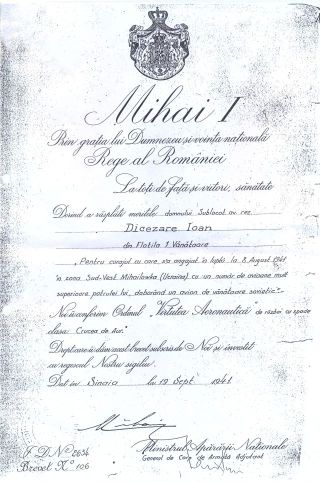 Mihai I
Prin grația lui Dumnezeu și voința națională
Rege al României
La toți de față și viitori, sănătate
Dorind a răsplăti meritele domnului Sublocot. av. rez.
Dicezare Ioan
din Flotila 1 Vânătoare
„Pentru curajul cu care, s'a angajat în lupta la 8 August 1941
în zona Sud-Vest Mihailowka (Ucraina) cu un număr de avioane mult
superioare patrulei lui, doborând un avion de vânătoare sovietic".-
Noi îi conferim Ordinul „Virtutea Aeronautică" de război cu spade
clasa Crucea de Aur.
Drept care îi dăm acest brevet subscris de Noi și investit
cu regescul Nostru sigiliu.
Dat în Sinaia la 19 Sept 1941
Mihai
Ministrul Apărării Naționale
General de Corp de Armată Adjutant
I.D. No 2634
Brevet No 106